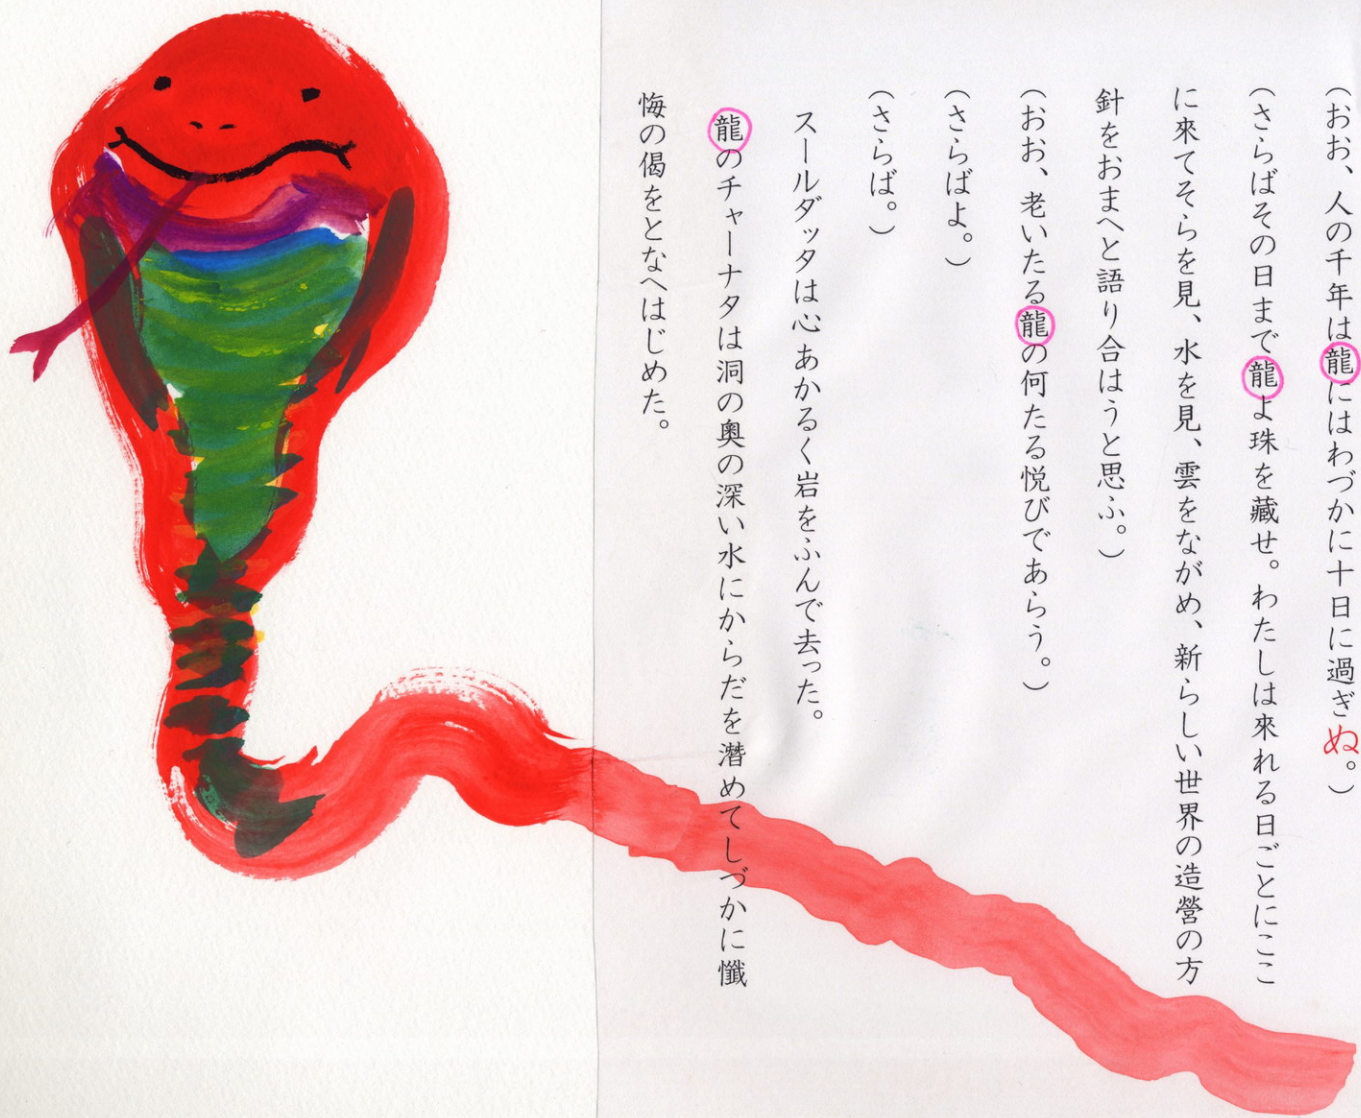 (おお、人の千年は龍にはわづかに十日に過ぎぬ。)
(さらばその日まで龍よ珠を藏せ。わたしは來れる日ごとにここ
に來てそらを見、水を見、雲をながめ、新らしい世界の造營の方
針をおまへと語り合はうと思ふ。)
(おお、老いたる龍の何たる悦びであらう。)
(さらばよ。)
(さらば。)
スールダッタは心あかるく岩をふんで去った。
龍のチャーナタは洞の奥の深い水にからだを潛めてしづかに懺
悔の偈をとなへはじめた。